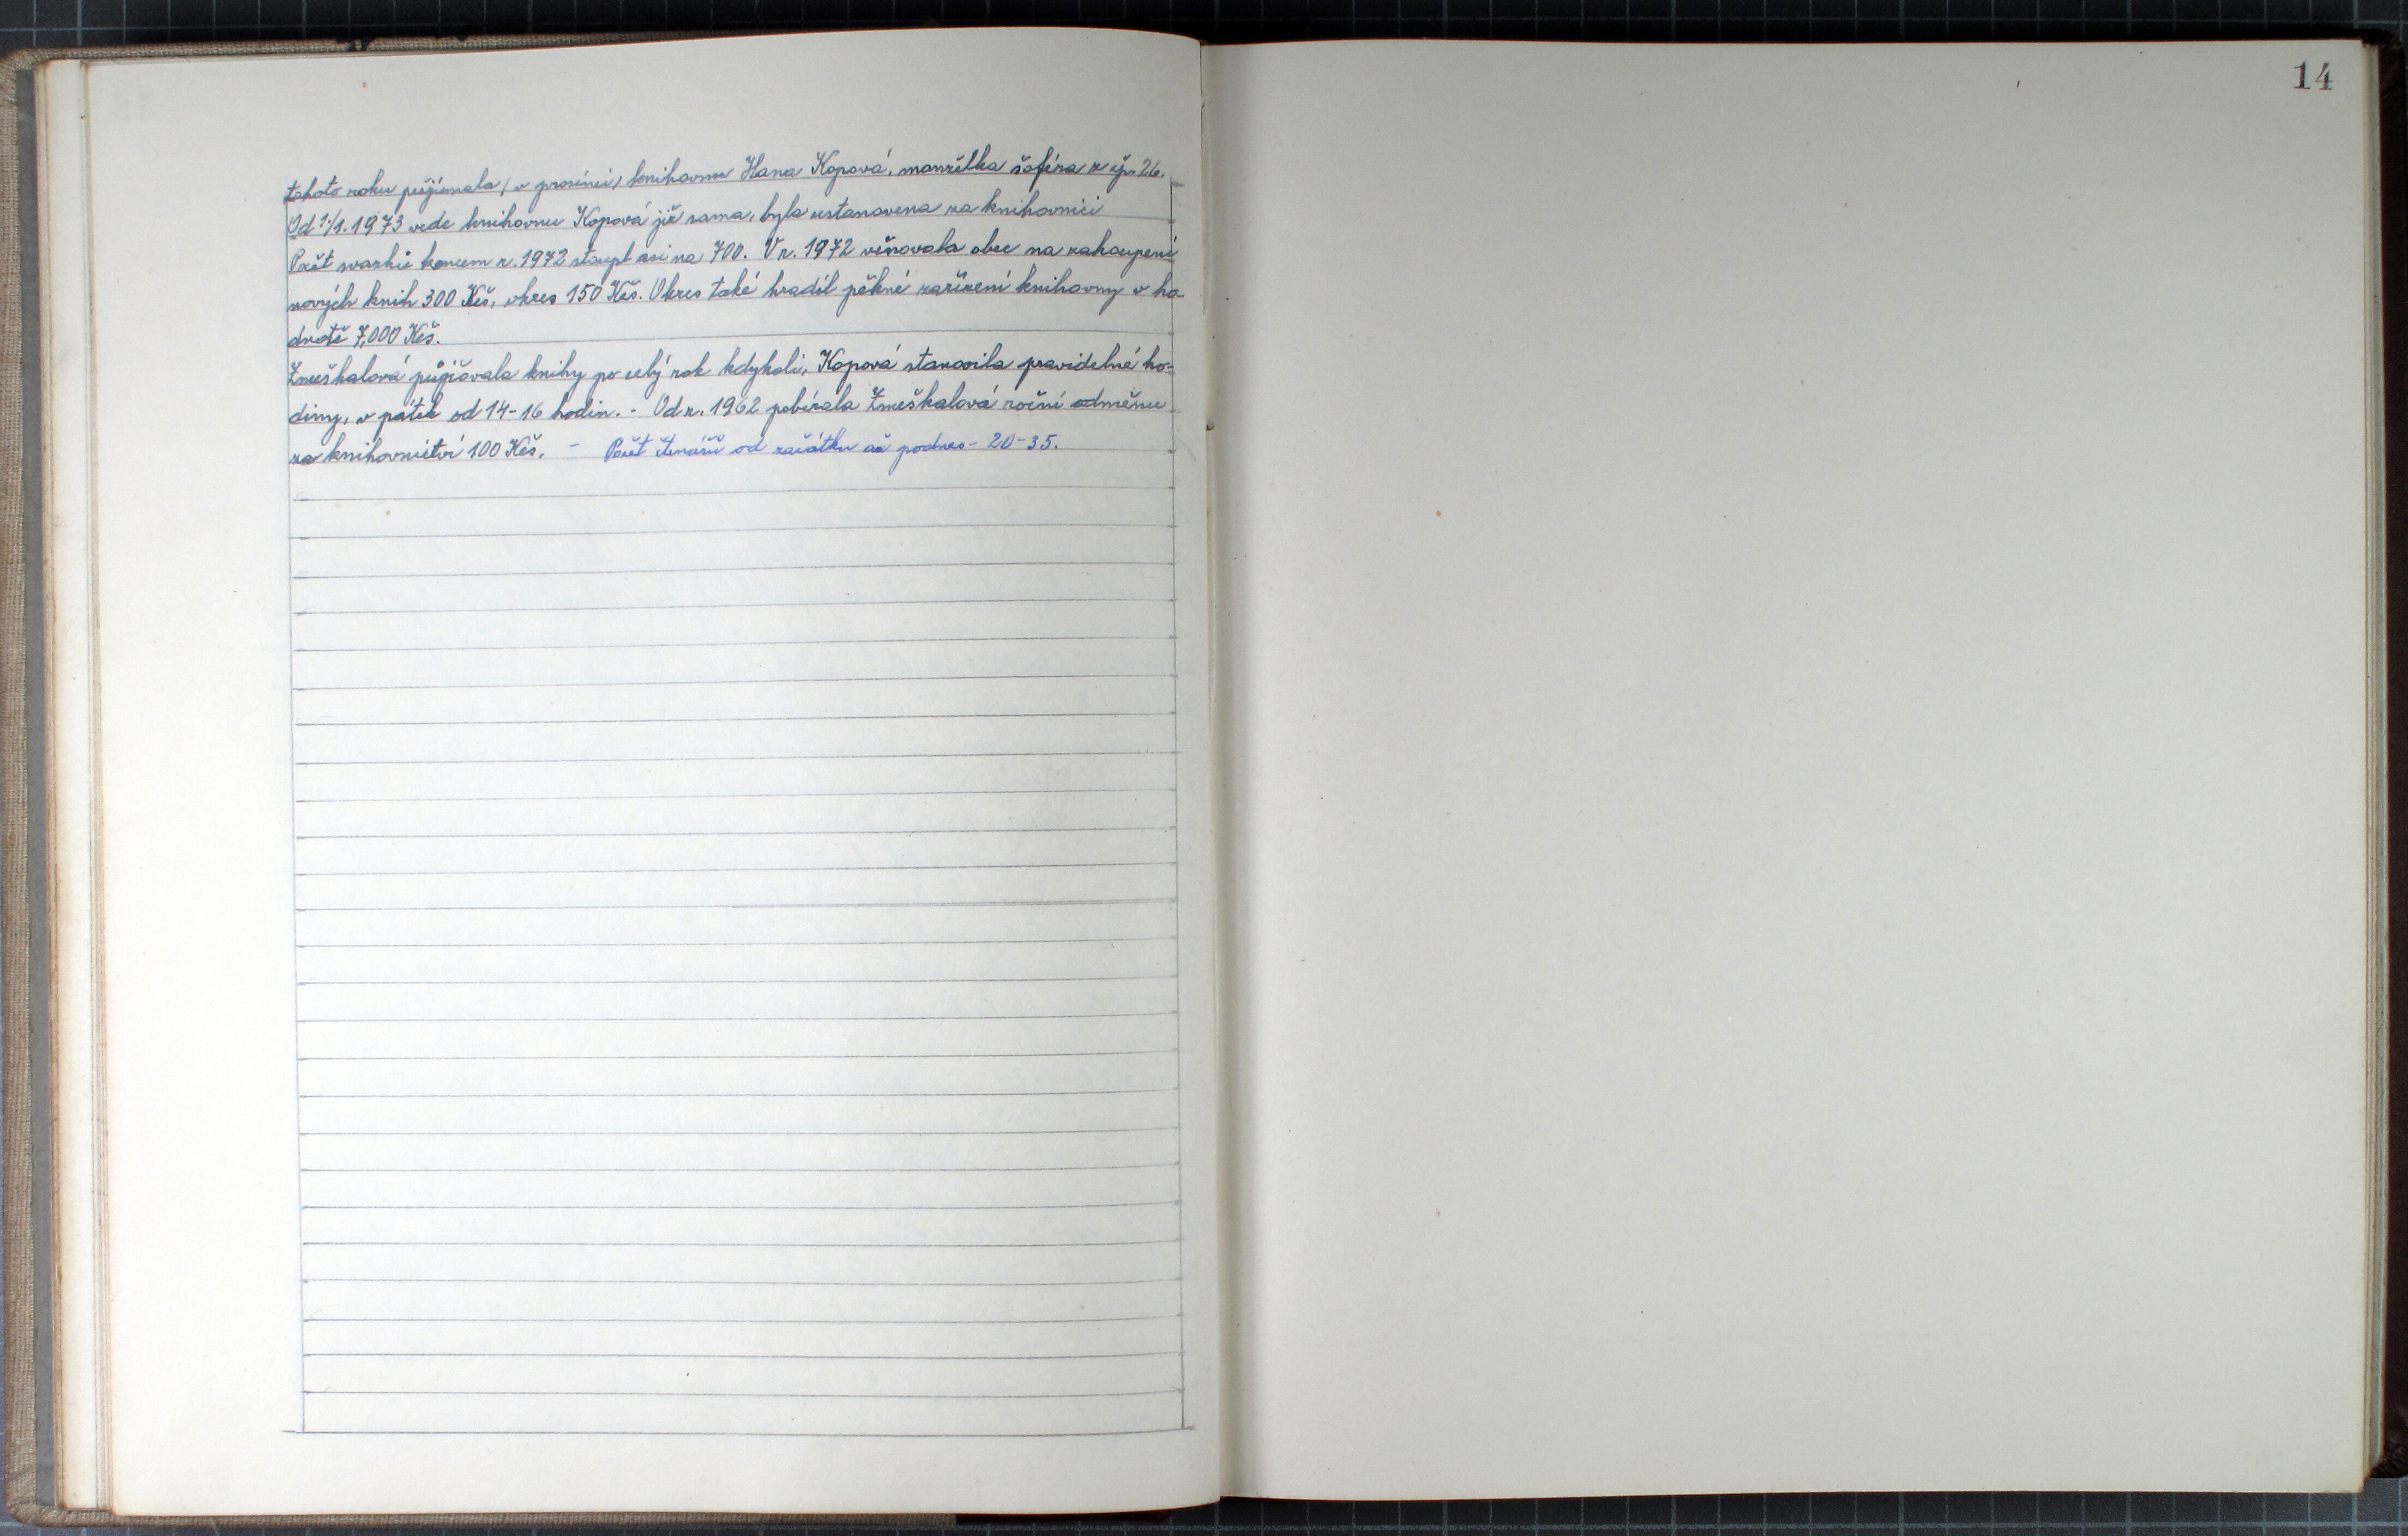 tohoto roku přijímala (v prosinci) knihovnu Hana Kopová, manželka šoféra z čp. 26.
Od 1./1. 1973 vede knihovnu Kopová již sama, byla ustanovena za knihovnici
Počet svazků koncem r. 1972 stoupl asi na 700. V r. 1972 věnovala obec na zakoupení
nových knih 300 Kčs, okres 150 Kčs. Okres také hradil pěkné zařízení knihovny v ho-
dnotě 7,000 Kčs.
Zmeškalová půjčovala knihy po celý rok kdykoli, Kopová stanovila pravidelné ho-
diny, v pátek od 14-16 hodin. - Od r. 1962 pobírala Zmeškalová roční odměnu
za knihovnictví 100 Kčs. - Počet čtenářů od začátku až podnes - 20-35.
14